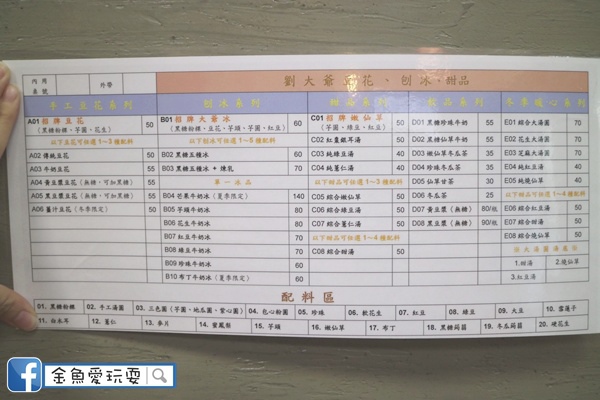 內用 外帶
桌號
劉大爺豆花、刨冰、甜品
手工豆花系列 刨冰系列 甜品系列 飲品系列 冬季暖心系列
A01招牌豆花 50
(黑糖粉粿、芋圓、花生)
以下豆花可任選1~3種配料
A02 傳統豆花 50
A03 牛奶豆花 55
A04 黃豆漿豆花(無糖,可加黑糖) 55
A05 黑豆漿豆花(無糖,可加黑糖) 55
A06 薑汁豆花(冬季限定) 50
B01招牌大爺冰 60
(黑糖粉粿、豆花、芋頭、芋圓、紅豆)
以下刨冰可任選1~5種配料
B02 黑糖五種冰 60
B03 黑糖五種冰 + 煉乳 70
單一冰品
B04 芒果牛奶冰(夏季限定) 140
B05 芋頭牛奶冰 80
B06 花生牛奶冰 80
B07 紅豆牛奶冰 70
B08 綠豆牛奶冰 70
B09 珍珠牛奶冰 60
B10 布丁牛奶冰(夏季限定) 60
C01招牌嫩仙草 50
(芋圓、綠豆、紅豆)
C02 紅棗銀耳湯 50
C03 純綠豆湯 40
C04 純薏仁湯 40
以下甜品可任選1~3種配料
C05 綜合嫩仙草 50
C06 綜合綠豆湯 50
C07 綜合薏仁湯 50
以下甜品可任選1~4種配料
C08 綜合甜湯 50
D01 黑糖珍珠牛奶 55
D02 黑糖仙草牛奶 55
D03 嫩仙草冬瓜茶 35
D04 珍珠冬瓜茶 35
D05 仙草甘茶 30
D06 冬瓜茶 25
D07 黃豆漿(無糖) 80/瓶
D08 黑豆漿(無糖) 90/瓶
E01 綜合大湯圓 70
E02 花生大湯圓 70
E03 芝麻大湯圓 70
E04 純紅豆湯 40
E05 純燒仙草 40
以下甜品可任選1~4種配料
E06 綜合紅豆湯 50
E07 綜合甜湯 50
E08 綜合燒仙草 50
1.甜湯 2.燒仙草
3.紅豆湯
配料區
01. 黑糖粉粿 02. 手工湯圓 03. 三色圓(芋圓、地瓜圓、紫心圓) 04. 包心粉圓 05. 珍珠 06. 軟花生 07. 紅豆 08. 綠豆 09. 大豆 10. 雪蓮子
11. 白木耳 12. 薏仁 13. 麥片 14. 蜜鳳梨 15. 芋頭 16. 嫩仙草 17. 布丁 18. 黑糖蒟蒻 19. 冬瓜蒟蒻 20. 硬花生
金魚愛玩耍